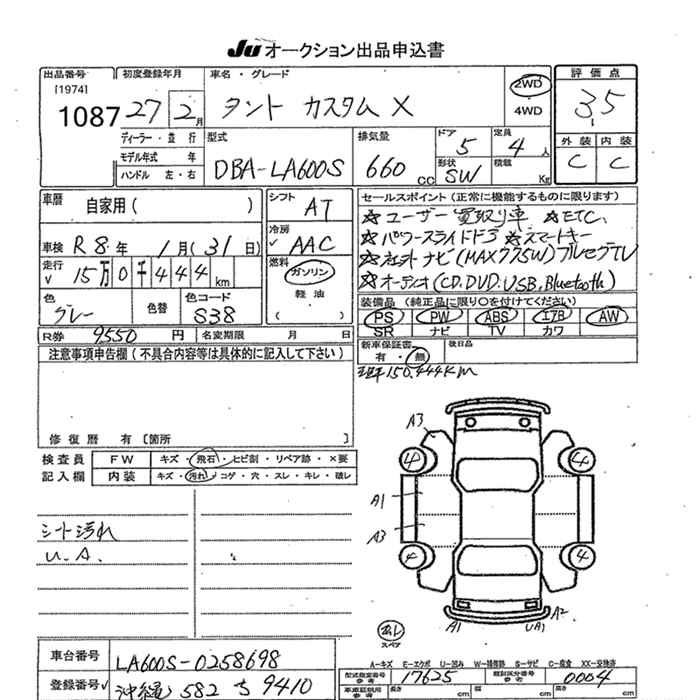 Ju オークション出品申込書
出品番号 初度登録年月 車名・グレード 評価点
[1974]
1087 27 2月 タント カスタム X 2WD 4WD 3.5
ディーラー・並行 型式 排気量 ドア 定員 外装 内装
モデル年式 年 DBA-LA600S 660 cc 5 4人 C C
ハンドル 左・右 形状 SW 積載 Kg
車歴 自家用( ) シフト AT セールスポイント(正常に機能するものに限ります)
☆ユーザー買取り車 ☆ETC.
車検 R8年 1月(31日) 冷房 AAC ☆パワースライドドア ☆スマートキー
☆社外ナビ(MAX775W)フルセグTV
走行 15万0千444km 燃料 ガソリン 軽油 ( ) ☆オーディオ(CD.DVD.USB.Bluetooth)
色 グレー 色替 色コード S38 装備品(純正品に限り○を付けてください)
PS PW ABS エアB AW
SR ナビ TV カワ
R券 9550円 名変期限 月 日
注意事項申告欄(不具合内容等は具体的に記入して下さい) 新車保証書 有・無 後日品
150,444Km
修復歴 有〔箇所 〕
検査員 FW キズ・飛石・ヒビ割・リペア跡・×要
記入欄 内装 キズ・汚れ・コゲ・穴・スレ・キレ・破レ
シート汚れ
U.A.
A3
4 4
A1
A3
4 4
スペア A1 UA1 A2
車台番号 LA600S-0258698
A-キズ E-エクボ U-凹み W-補修跡 S-サビ C-腐食 XX-交換済
型式指定番号 17625 類別区分番号 0004
登録番号 沖縄 582 ち 9410
長さ cm 幅 cm 高さ cm